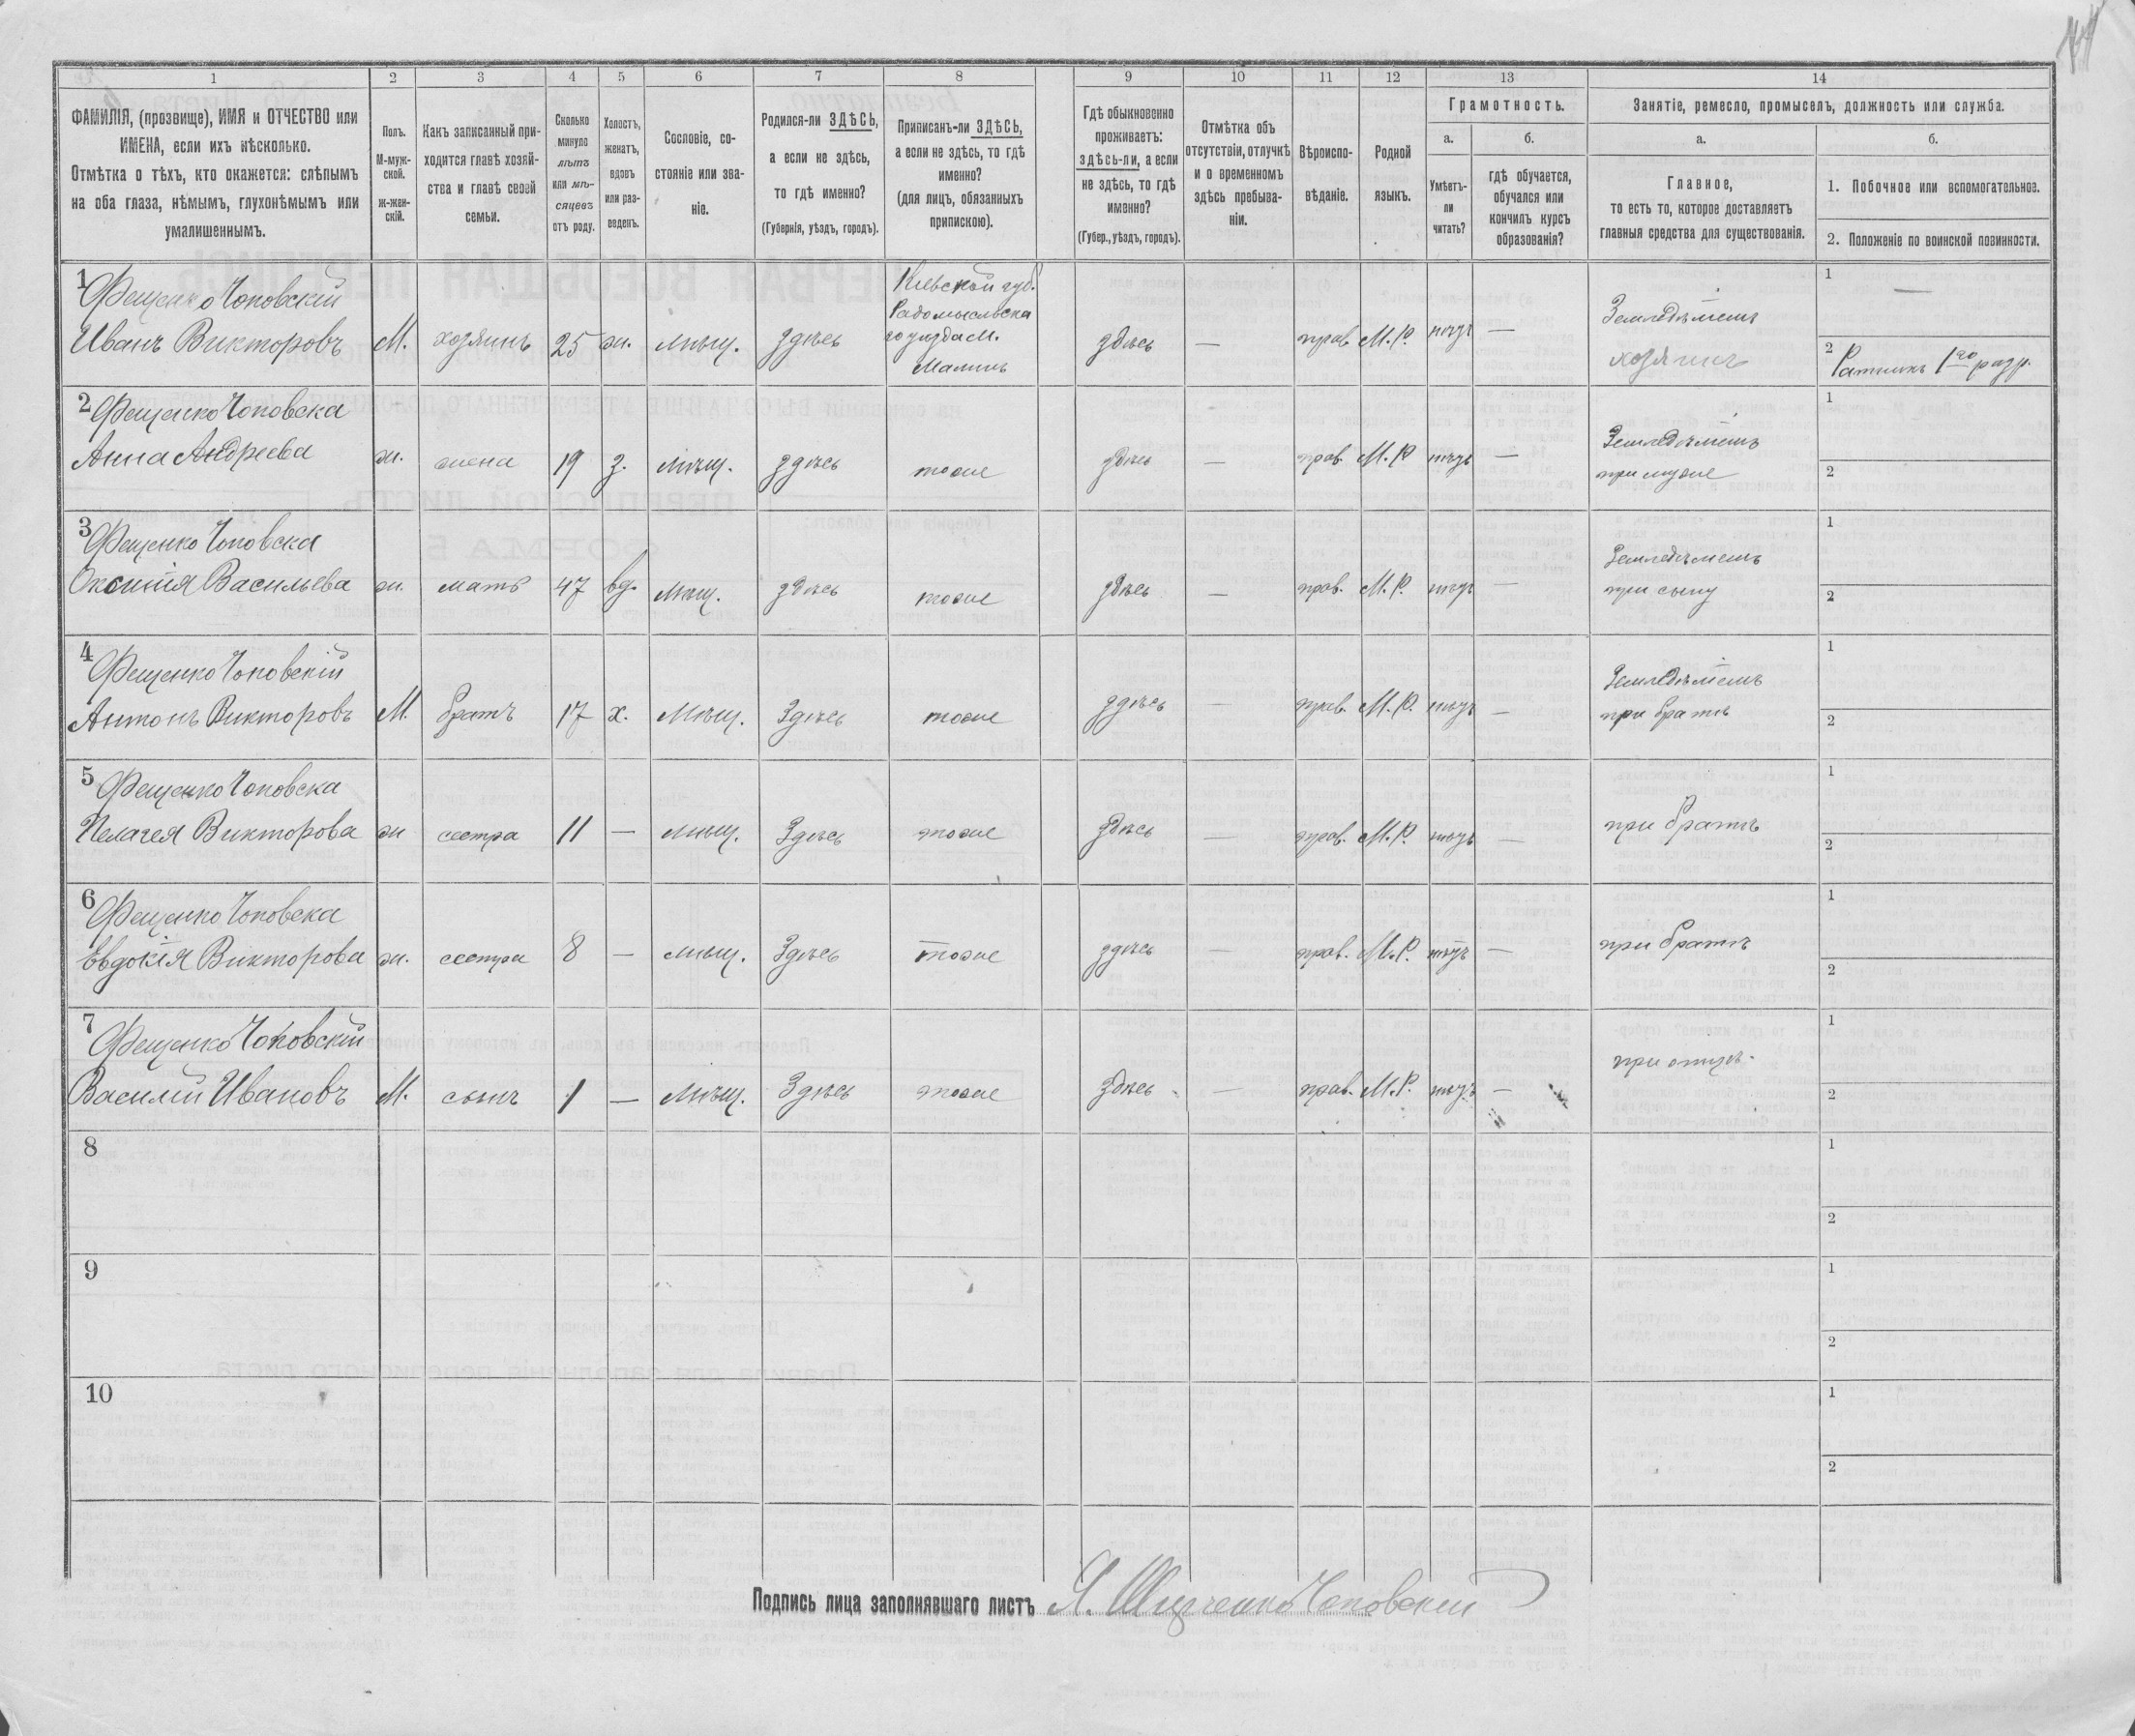 1 2 3 4 5 6 7 8 9 10 11 12 13 14
ФАМИЛІЯ, (прозвище), ИМЯ и ОТЧЕСТВО или
ИМЕНА, если ихъ нѣсколько.
Отмѣтка о тѣхъ, кто окажется: слѣпымъ
на оба глаза, нѣмымъ, глухонѣмымъ или
умалишеннымъ.
Полъ.
М-муж-
ской.
ж-жен-
скій.
Какъ записанный при-
ходится главѣ хозяй-
ства и главѣ своей
семьи.
Сколько
минуло
лѣтъ
или мѣ-
сяцевъ
отъ роду.
Холостъ,
женатъ,
вдовъ
или раз-
веденъ.
Сословіе, со-
стояніе или зва-
ніе.
Родился-ли ЗДѢСЬ,
а если не здѣсь,
то гдѣ именно?
(Губернія, уѣздъ, городъ).
Приписанъ-ли ЗДѢСЬ,
а если не здѣсь, то гдѣ
именно?
(для лицъ, обязанныхъ
припискою).
Гдѣ обыкновенно
проживаетъ:
здѣсь-ли, а если
не здѣсь, то гдѣ
именно?
(Губер., уѣздъ, городъ).
Отмѣтка объ
отсутствіи, отлучкѣ
и о временномъ
здѣсь пребыва-
ніи.
Вѣроиспо-
вѣданіе.
Родной
языкъ.
Грамотность.
а. б.
Умѣетъ-
ли
читать?
гдѣ обучается,
обучался или
кончилъ курсъ
образованія?
Занятіе, ремесло, промыселъ, должность или служба.
а. б.
Главное,
то есть то, которое доставляетъ
главныя средства для существованія.
1. Побочное или вспомогательное.
2. Положеніе по воинской повинности.
1
Фещенко Чоповскій
Иванъ Викторовъ М. хозяинъ 25 ж. мѣщ. здѣсь
Кіевской губ.
Радомысльска
го уѣзда М.
Малинъ
здѣсь — прав. М. Р. нѣтъ —
Земледѣліемъ
хозяинъ
1 —
2 Ратникъ 1го разр.
2
Фещенко Чоповска
Анна Андреева ж. жена 19 з. мѣщ. здѣсь тоже здѣсь — прав. М. Р. нѣтъ —
Земледѣліемъ
при мужѣ
1
2
3
Фещенко Чоповска
Оксинія Васильева ж. мать 47 вд. мѣщ. здѣсь тоже здѣсь — прав. М. Р. нѣтъ —
Земледѣліемъ
при сыну
1
2
4
Фещенко Чоповскій
Антонъ Викторовъ М. братъ 17 х. Мѣщ. Здѣсь тоже здѣсь — прав. М. Р. нѣтъ —
Земледѣліемъ
при братѣ
1
2
5
Фещенко Чоповска
Пелагея Викторова ж сестра 11 — мѣщ. Здѣсь тоже здѣсь — прав. М. Р. нѣтъ —
при братѣ
1
2
6
Фещенко Чоповска
Евдокія Викторова ж. сестра 8 — мѣщ. Здѣсь тоже здѣсь — прав. М. Р. нѣтъ —
при братѣ
1
2
7
Фещенко Чоповскій
Василій Ивановъ М. сынъ 1 — Мѣщ. Здѣсь тоже здѣсь — прав. М. Р. нѣтъ —
при отцѣ.
1
2
8
1
2
9
1
2
10
1
2
Подпись лица заполнявшаго листъ Чоповскій